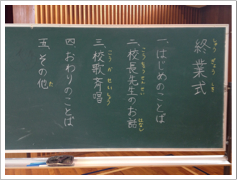 終業式
一、はじめのことば
二、校長先生のお話
三、校歌斉唱
四、おわりのことば
五、その他